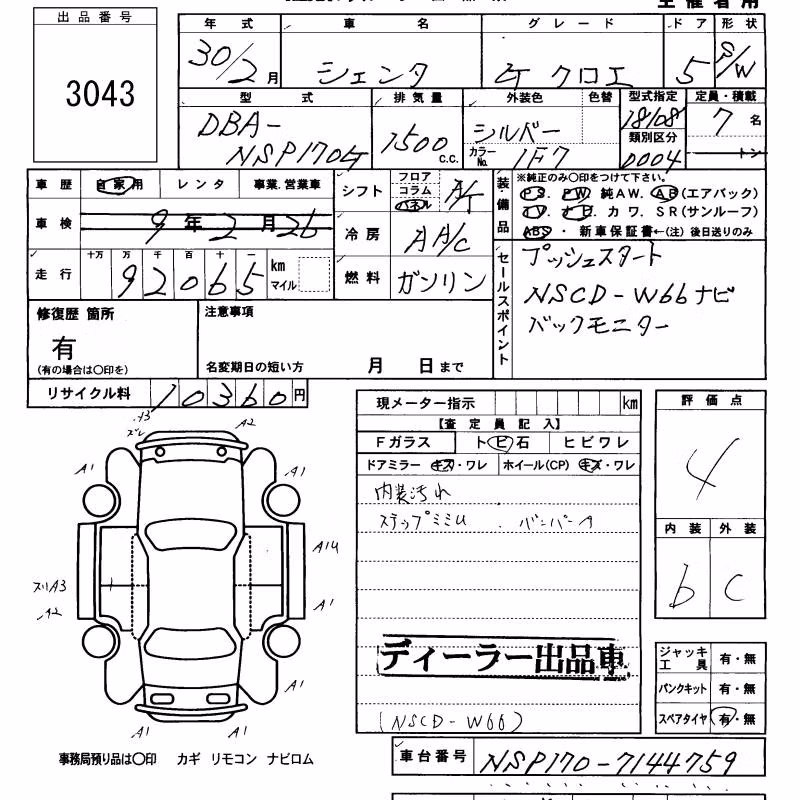 出品番号
3043
年式 車名 グレード ドア 形状
30/2月 シエンタ ケ クロエ 5 S/W
型式 排気量 外装色 色替 型式指定 定員・積載
DBA- 1500 c.c. シルバー 18108 7名
NSP170ケ カラーNo. 1F7 類別区分 0004 トン
車歴 自家用 レンタ 事業.営業車
車検 9年2月26
走行 十万 万 千 百 十 一
92065 km マイル
シフト フロア コラム パネル
冷房 AA/C
燃料 ガソリン
装備品
※純正のみ〇印をつけて下さい。
PS. PW 純AW. AB(エアバック)
TV. ナビ. カワ. SR(サンルーフ)
ABS・新車保証書←(注)後日送りのみ
セールスポイント
プッシュスタート
NSCD-W66ナビ
バックモニター
修復歴 箇所
有
(有の場合は〇印を)
注意事項
名変期日の短い方 月 日まで
リサイクル料 10360円
現メーター指示 km
【査定員記入】
Fガラス トビ石 ヒビワレ
ドアミラー キズ・ワレ ホイール(CP) キズ・ワレ
内装汚れ
ステップミミU バンパーA
ディーラー出品車
(NSCD-W66)
評価点
4
内装 外装
b C
ジャッキ工具 有・無
パンクキット 有・無
スペアタイヤ 有・無
A3
ズレ
A2
A1
A1
A14
スリA3
A2
A1
A1
A1
A1
事務局預り品は〇印 カギ リモコン ナビロム
車台番号 NSP170-7144759